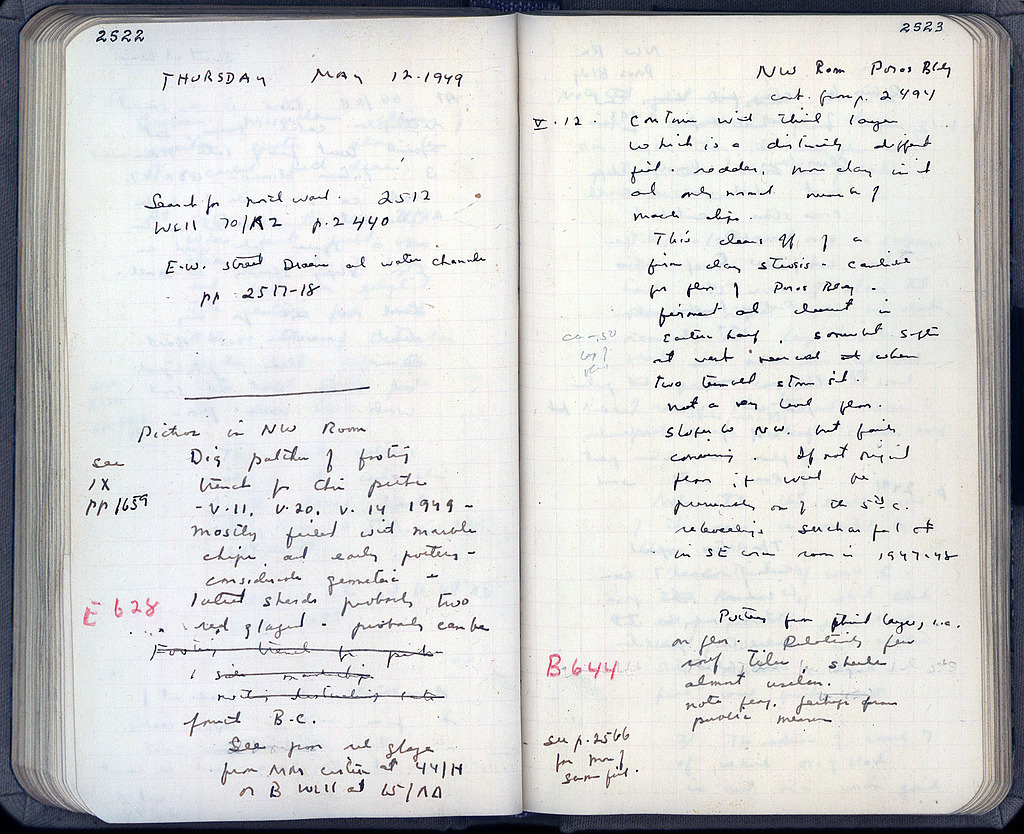 2522
THURSDAY MAY 12 1949
Search for west wall. 2512
Well 70/A2 p. 2440
E.W. street Drain and water channels
pp 2517-18
Pictros in NW Room
see
IX
pp 1659
Dig patches of footing
trench for this
- V.11, V.20, V. 14 1949 -
mostly filled with marble
chips and early pottery -
considerable geometric -
latest sherds probably two
E 628
red glazed - probably can be
Footing trench for
fourth B.C.
See red glaze
from MM cistern at 44/H
or B Well at 65/ΛΔ
2523
NW Room Poros Bldg
cont. from p. 2494
V. 12. Contain with third layer
which is a distinctly different
fill redder, more clay in it
and only normal number of
marble chips.
This cleans off of a
firm clay stereo - candidate
for floor of Poros Bldg.
firmest and cleanest in
eastern half, somewhat softer
at west near and at where
two
not a very level floor.
Slopes to NW. but fairly
convincing. If not original
floor, it would be
presumably one of the 5th c.
such as found
in SE corner room in 1947-48
Pottery from third layer, i.e.
on floor. Relatively few
B 644
roof tiles, sherds
almost useless.
note frag. perhaps from
public measure
see p. 2566
for more of
same fill.